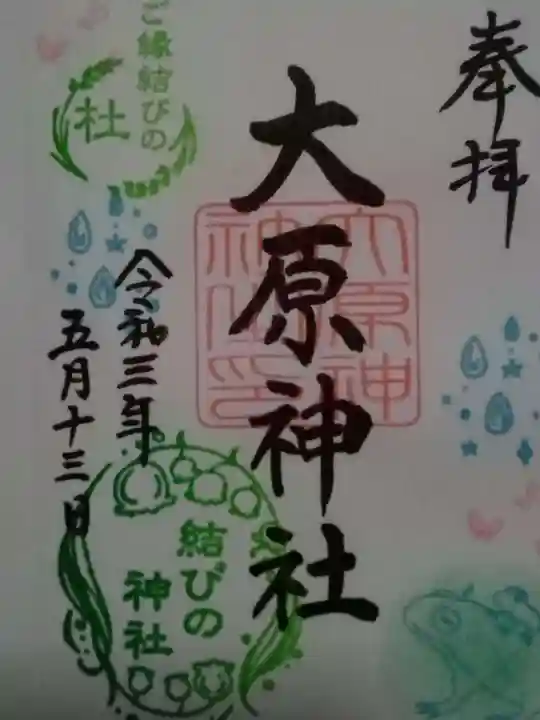 奉拝
大原神社
大原神
社御印
令和三年
五月十三日
ご縁結びの
杜
結びの
神社